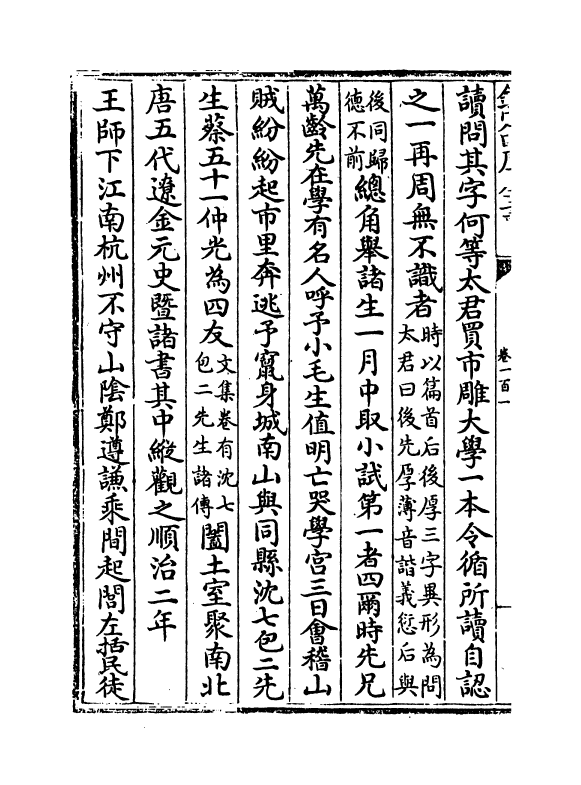 卷一百一
讀問其字何等太君買市雕大學一本令循所讀自認
之一再周無不識者時以篇首后後厚三字異形為問太君曰後先厚薄音諧義愆后與
後同歸德不前總角舉諸生一月中取小試第一者四爾時先兄
萬齡先在學有名人呼予小毛生值明亡哭學宮三日會稽山
賊紛紛起市里奔逃予竄身城南山與同縣沈七包二先
生蔡五十一仲光為四友文集卷有沈七包二先生諸傳闔土室聚南北
唐五代遼金元史暨諸書其中縱觀之順治二年
王師下江南杭州不守山陰鄭遵謙乘間起閭左括民徒